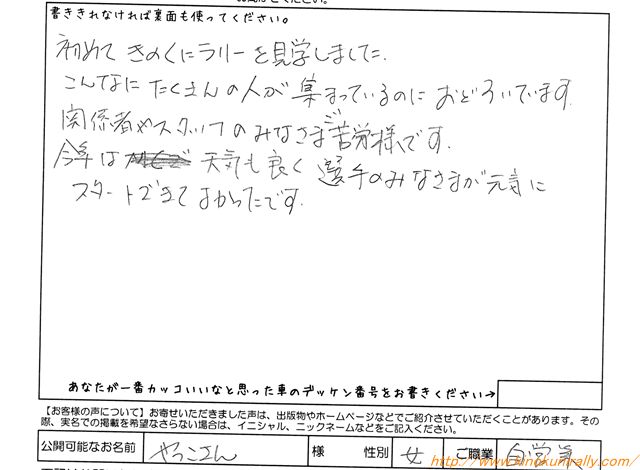 書ききれなければ裏面も使ってください。
初めて きのくにラリーを見学しました.
こんなに たくさんの人が 集まっているのに おどろいてます.
関係者やスタッフのみなさまご苦労様です.
今年は 天気も良く 選手のみなさまが元気に
スタートできて よかったです.
あなたが一番カッコいいなと思った車のゼッケン番号をお書きください→
【お客様の声について】お寄せいただきました声は、出版物やホームページなどでご紹介させていただくことがあります。その
際、実名での掲載を希望なさらない場合は、イニシャル、ニックネームなどをご記入ください。
公開可能なお名前 やっこさん 様 性別 女 ご職業 自営業
http://www.kinokunirally.com/